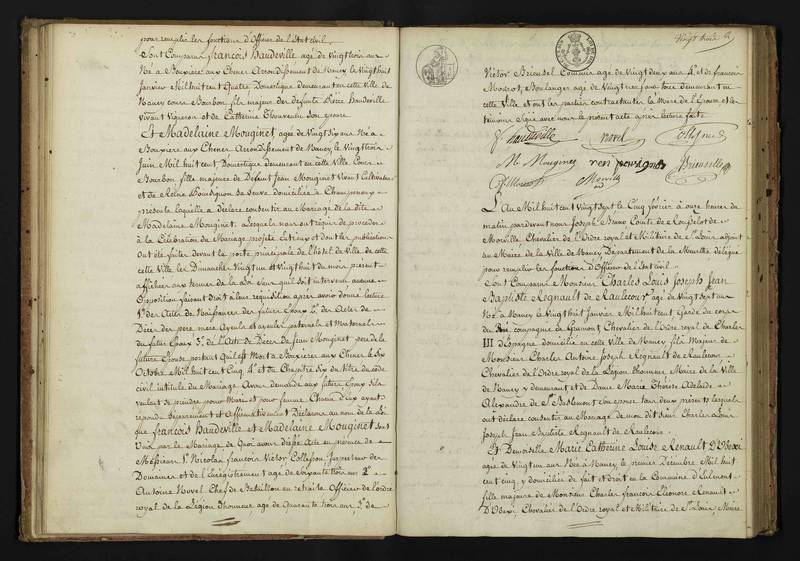 pour remplir les fonctions d'Officier de l'Etat civil.
Sont Comparus françois Haudeville agé de vingt trois ans
Né a Bouxiere aux Chenes Arrondissement de Nancy le vingt huit
Janvier Mil huit cent Quatre Domestique demeurant en cette ville de
Nancy cours Bourbon fils majeur des defunts Haudeville
vivant Vigneron et de Catherine Thouvenin son epouse
Et Madelaine Mouginet agée de Vingt Six ans Née a
Bouxiere aux Chenes Arrondissement de Nancy, le vingt trois
Juin Mil huit cent Domestique demeurant en cette Ville Cours
Bourbon fille majeure de Defunt Jean Mouginet vivant Cultivateur
et de Reine Bourdignon sa Veuve domiciliée a Champenoux
presente laquelle a déclaré consentir au Mariage de la dite
Madelaine Mouginet. Lesquels nous ont requis de proceder
à la Célébration du Mariage projeté entr'eux et dont les publications
ont été faites devant la porte principale de l'hotel de Ville de cette
cette Ville les Dimanches Vingt un et Vingt huit du mois
affichées aux termes de la Loi Sans qu'il soit intervenu aucune
Opposition faisant droit à leur requisition après avoir donné lecture
1º des Actes de Naissances des futurs Epoux 2º des Actes de
Décès des pere, mere, Ayeuls et ayeules paternels et Maternels
du futur Epoux 3º de l'Acte de Décès de Jean Mouginet pere de la
future Epouse portant qu'il est Mort à Bouxieres aux Chenes le Six
Octobre Mil huit cent Cinq 4º et du Chapitre Six du titre du code
civil intitulé du Mariage Avons demandé aux futurs Epoux S'ils
veulent se prendre pour Mari et pour femme Chacun d'eux ayant
repondu Séparement et Affirmativement Déclarons au nom de la loi
que françois Haudeville et Madelaine Mouginet sont
Unis par le Mariage de Quoi avons dressé Acte en présence de
Messieurs Nicolas francois Victor Collesson Inspecteur des
Domaines et de l'Enregistrement agé de Soixante trois ans 2º
Antoine Novel Chef de Bataillon en retraite Officier de l'ordre
royal de la Légion d'honneur agé de Quarante trois ans 3º de
Vingt trois
Victor Brieusel Commis agé de Vingt deux ans 4º et de francois
Moizot, Boulanger agé de Vingt neuf ans tous demeurant en
cette Ville et ont les parties contractantes la Mere de l'Epouse et les
témoins Signé avec nous le present acte après lecture faite
f haudeville Novel
M. Mougine
Brieusel
Morville
L'An Mil huit cent Vingt Sept le Cinq février à onze heures du
matin pardevant nous Joseph Bruno Comte de de
Morville Chevalier de l'Ordre royal et Militaire de St Louis, adjoint
au Maire de la Ville de Nancy Département de la Meurthe délégué
pour remplir les fonctions d'Officier de l'Etat civil.
Sont Comparus Monsieur Charles Louis Joseph Jean
Baptiste Regnault de Raulecourt agé de Vingt sept ans
Né a Nancy le Vingt huit Janvier Mil huit cent, Garde du corps
du Roi compagnie de Gramont, Chevalier de l'Ordre royal de Charles
III d'Espagne domicilié en cette Ville de Nancy fils Majeur de
Monsieur Charles Antoine Joseph Regnault de Raulecourt
Chevalier de l'Ordre royal de la Légion d'honneur Maire de la Ville
de Nancy y demeurant et de Dame Marie Thérèse Adelaide
Alexandre de St Baslemont son epouse tous deux présents lesquels
ont déclaré consentir au Mariage de mon dit Sieur Charles Louis
Joseph Jean Baptiste Regnault de Raulecourt.
Et Demoiselle Marie Catherine Louise Renault D'Ubexi
agée de Vingt un ans Née a Nancy, le premier Décembre Mil huit
cent cinq, y domiciliée de fait et droit en la Commune d'Eulmont
fille majeure de Monsieur Charles francois Eleonore Renault
D'Ubexi Chevalier de l'Ordre royal et Militaire de St Louis, Maire